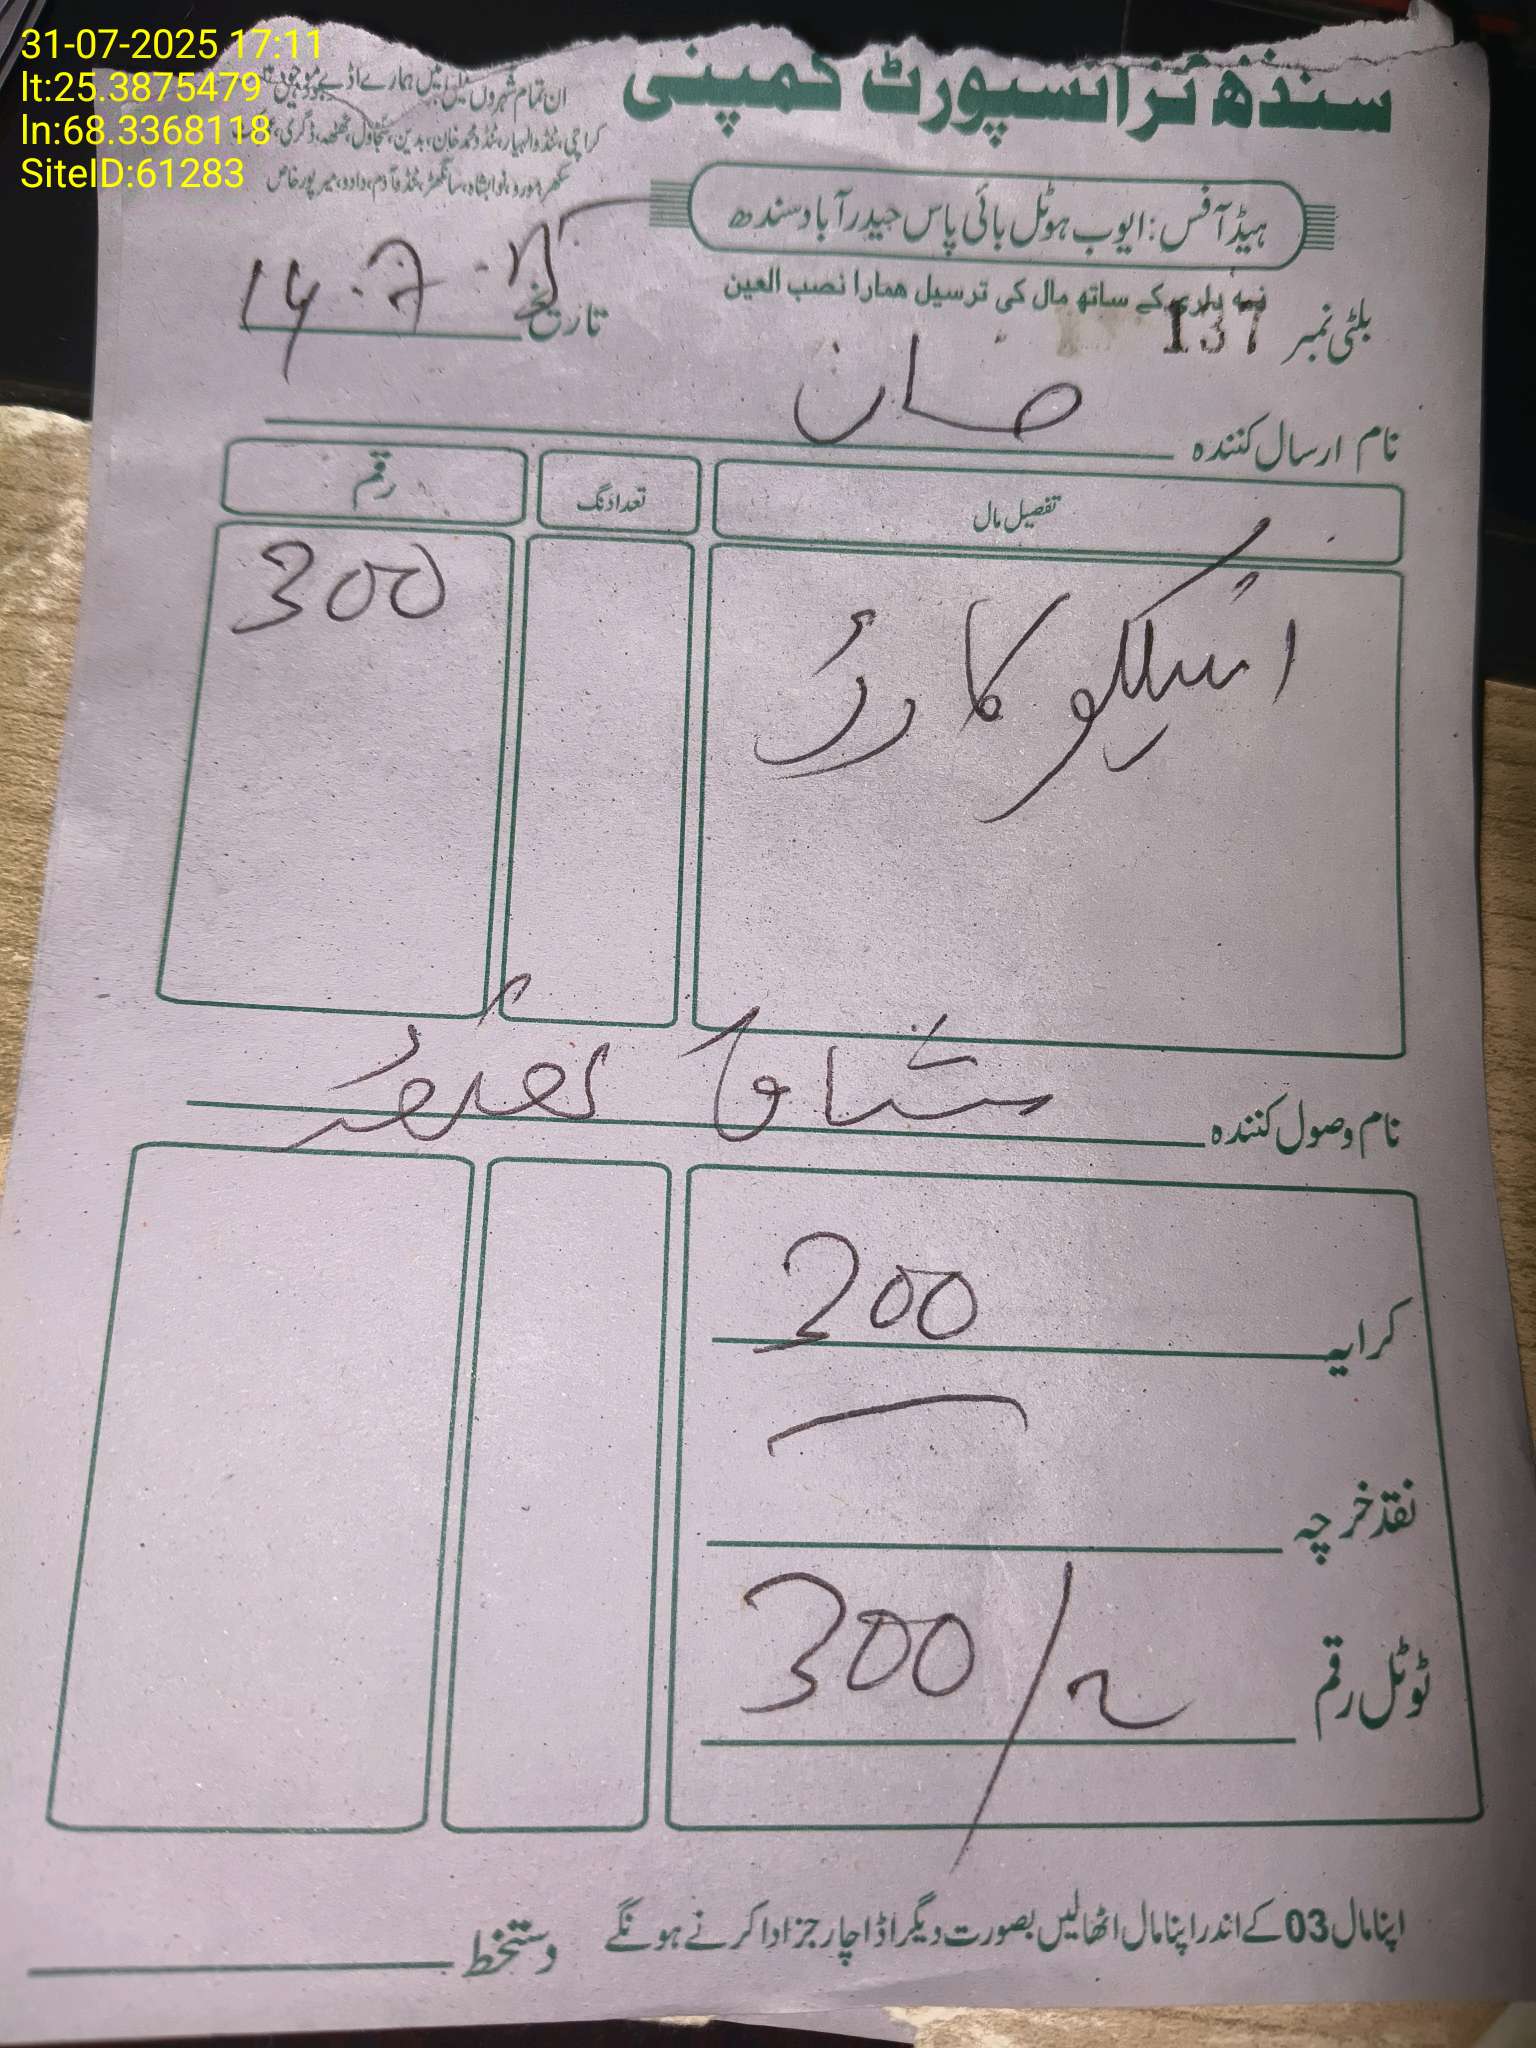 31-07-2025 17:11
lt:25.3875479
ln:68.3368118
SiteID:61283
سندھ ٹرانسپورٹ کمپنی
ان تمام شہروں میں ہمارے اڈے موجود ہیں
کراچی، ٹنڈوالہیار، ٹنڈو محمد خان، بدین، سجاول، ٹھٹھہ، ڈگری،
سکھر، مورو، نوابشاہ، سانگھڑ، ٹنڈو آدم، دادو، میرپورخاص
ہیڈ آفس: ایوب ہوٹل بائی پاس حیدرآباد سندھ
ذمہ داری کے ساتھ مال کی ترسیل ھمارا نصب العین
بلٹی نمبر 137
تاریخ 14.7.
نام ارسال کنندہ
تفصیل مال
تعداد نگ
رقم
کارڈ
300
نام وصول کنندہ
کرایہ 200
نقد خرچہ
ٹوٹل رقم 300/
اپنا مال 03 کے اندر اپنا مال اٹھالیں بصورت دیگر اڈا چارجز ادا کرنے ہونگے
دستخط